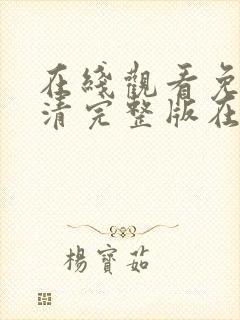 在綫觀看免
清完整版在
楊寶茹